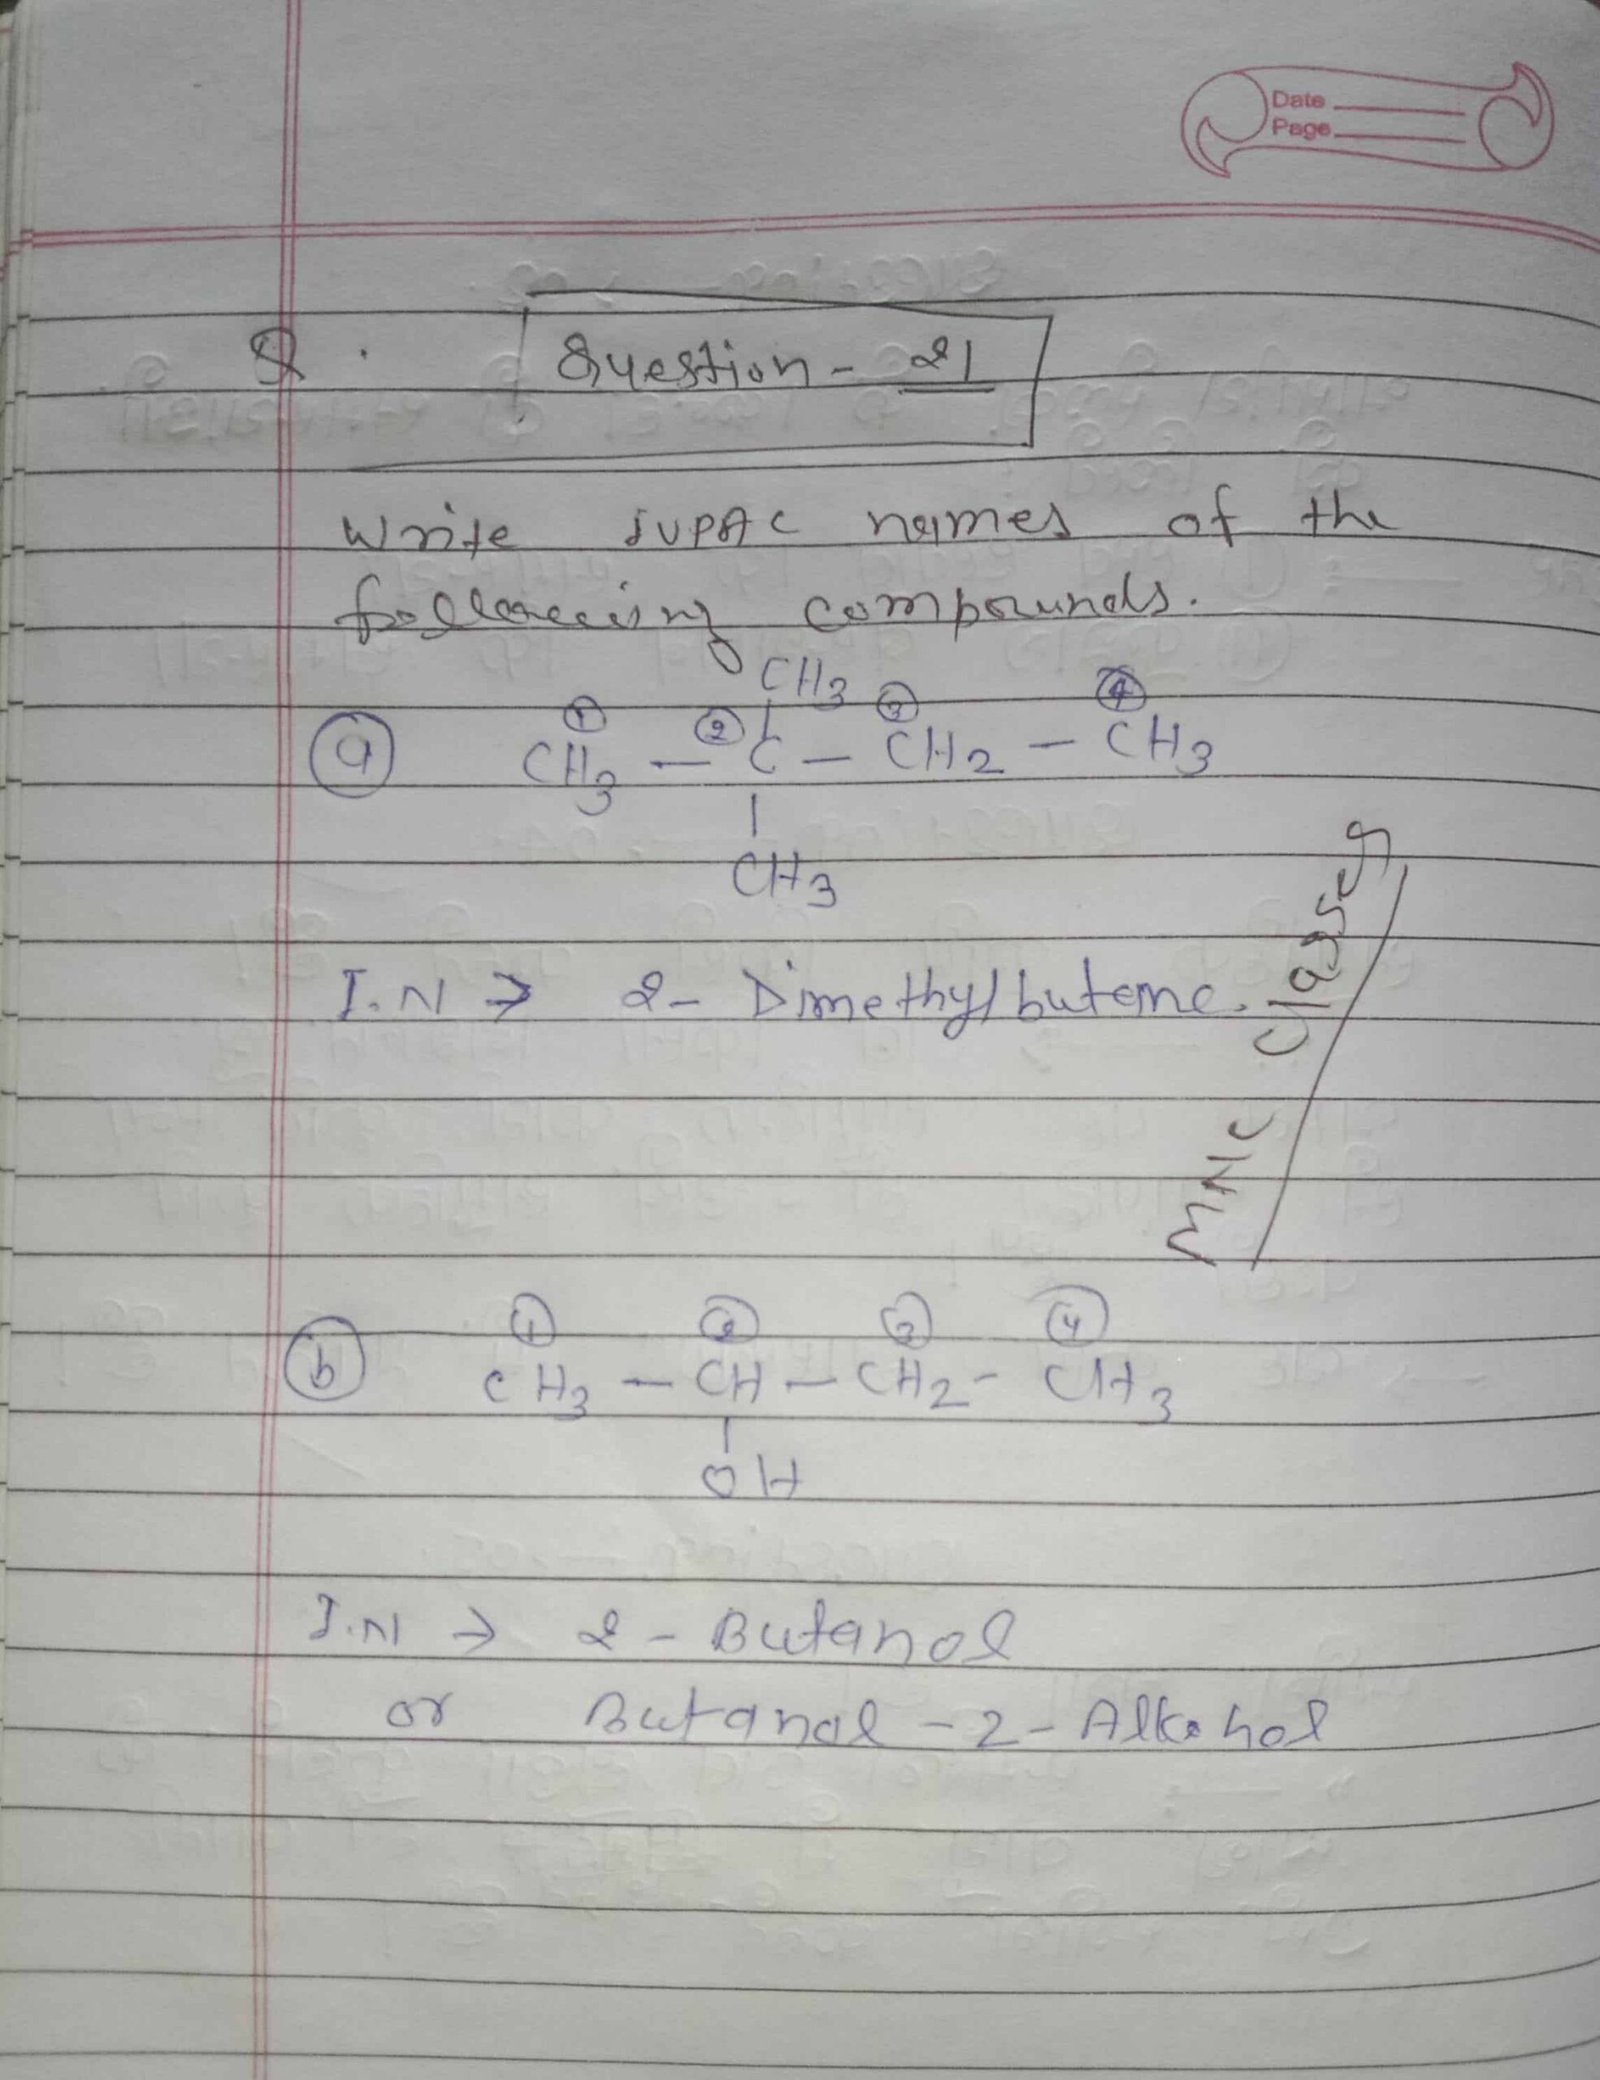 Date
Page
Q.
Question - 21
Write IUPAC names of the
following compounds.
CH3
① ② ③ ④
ⓐ CH3 - C - CH2 - CH3
CH3
I.N → 2- Dimethylbutane.
MNC Classes
① ② ③ ④
ⓑ CH3 - CH - CH2 - CH3
OH
I.N → 2 - Butanol
or Butanol - 2 - Alkohol